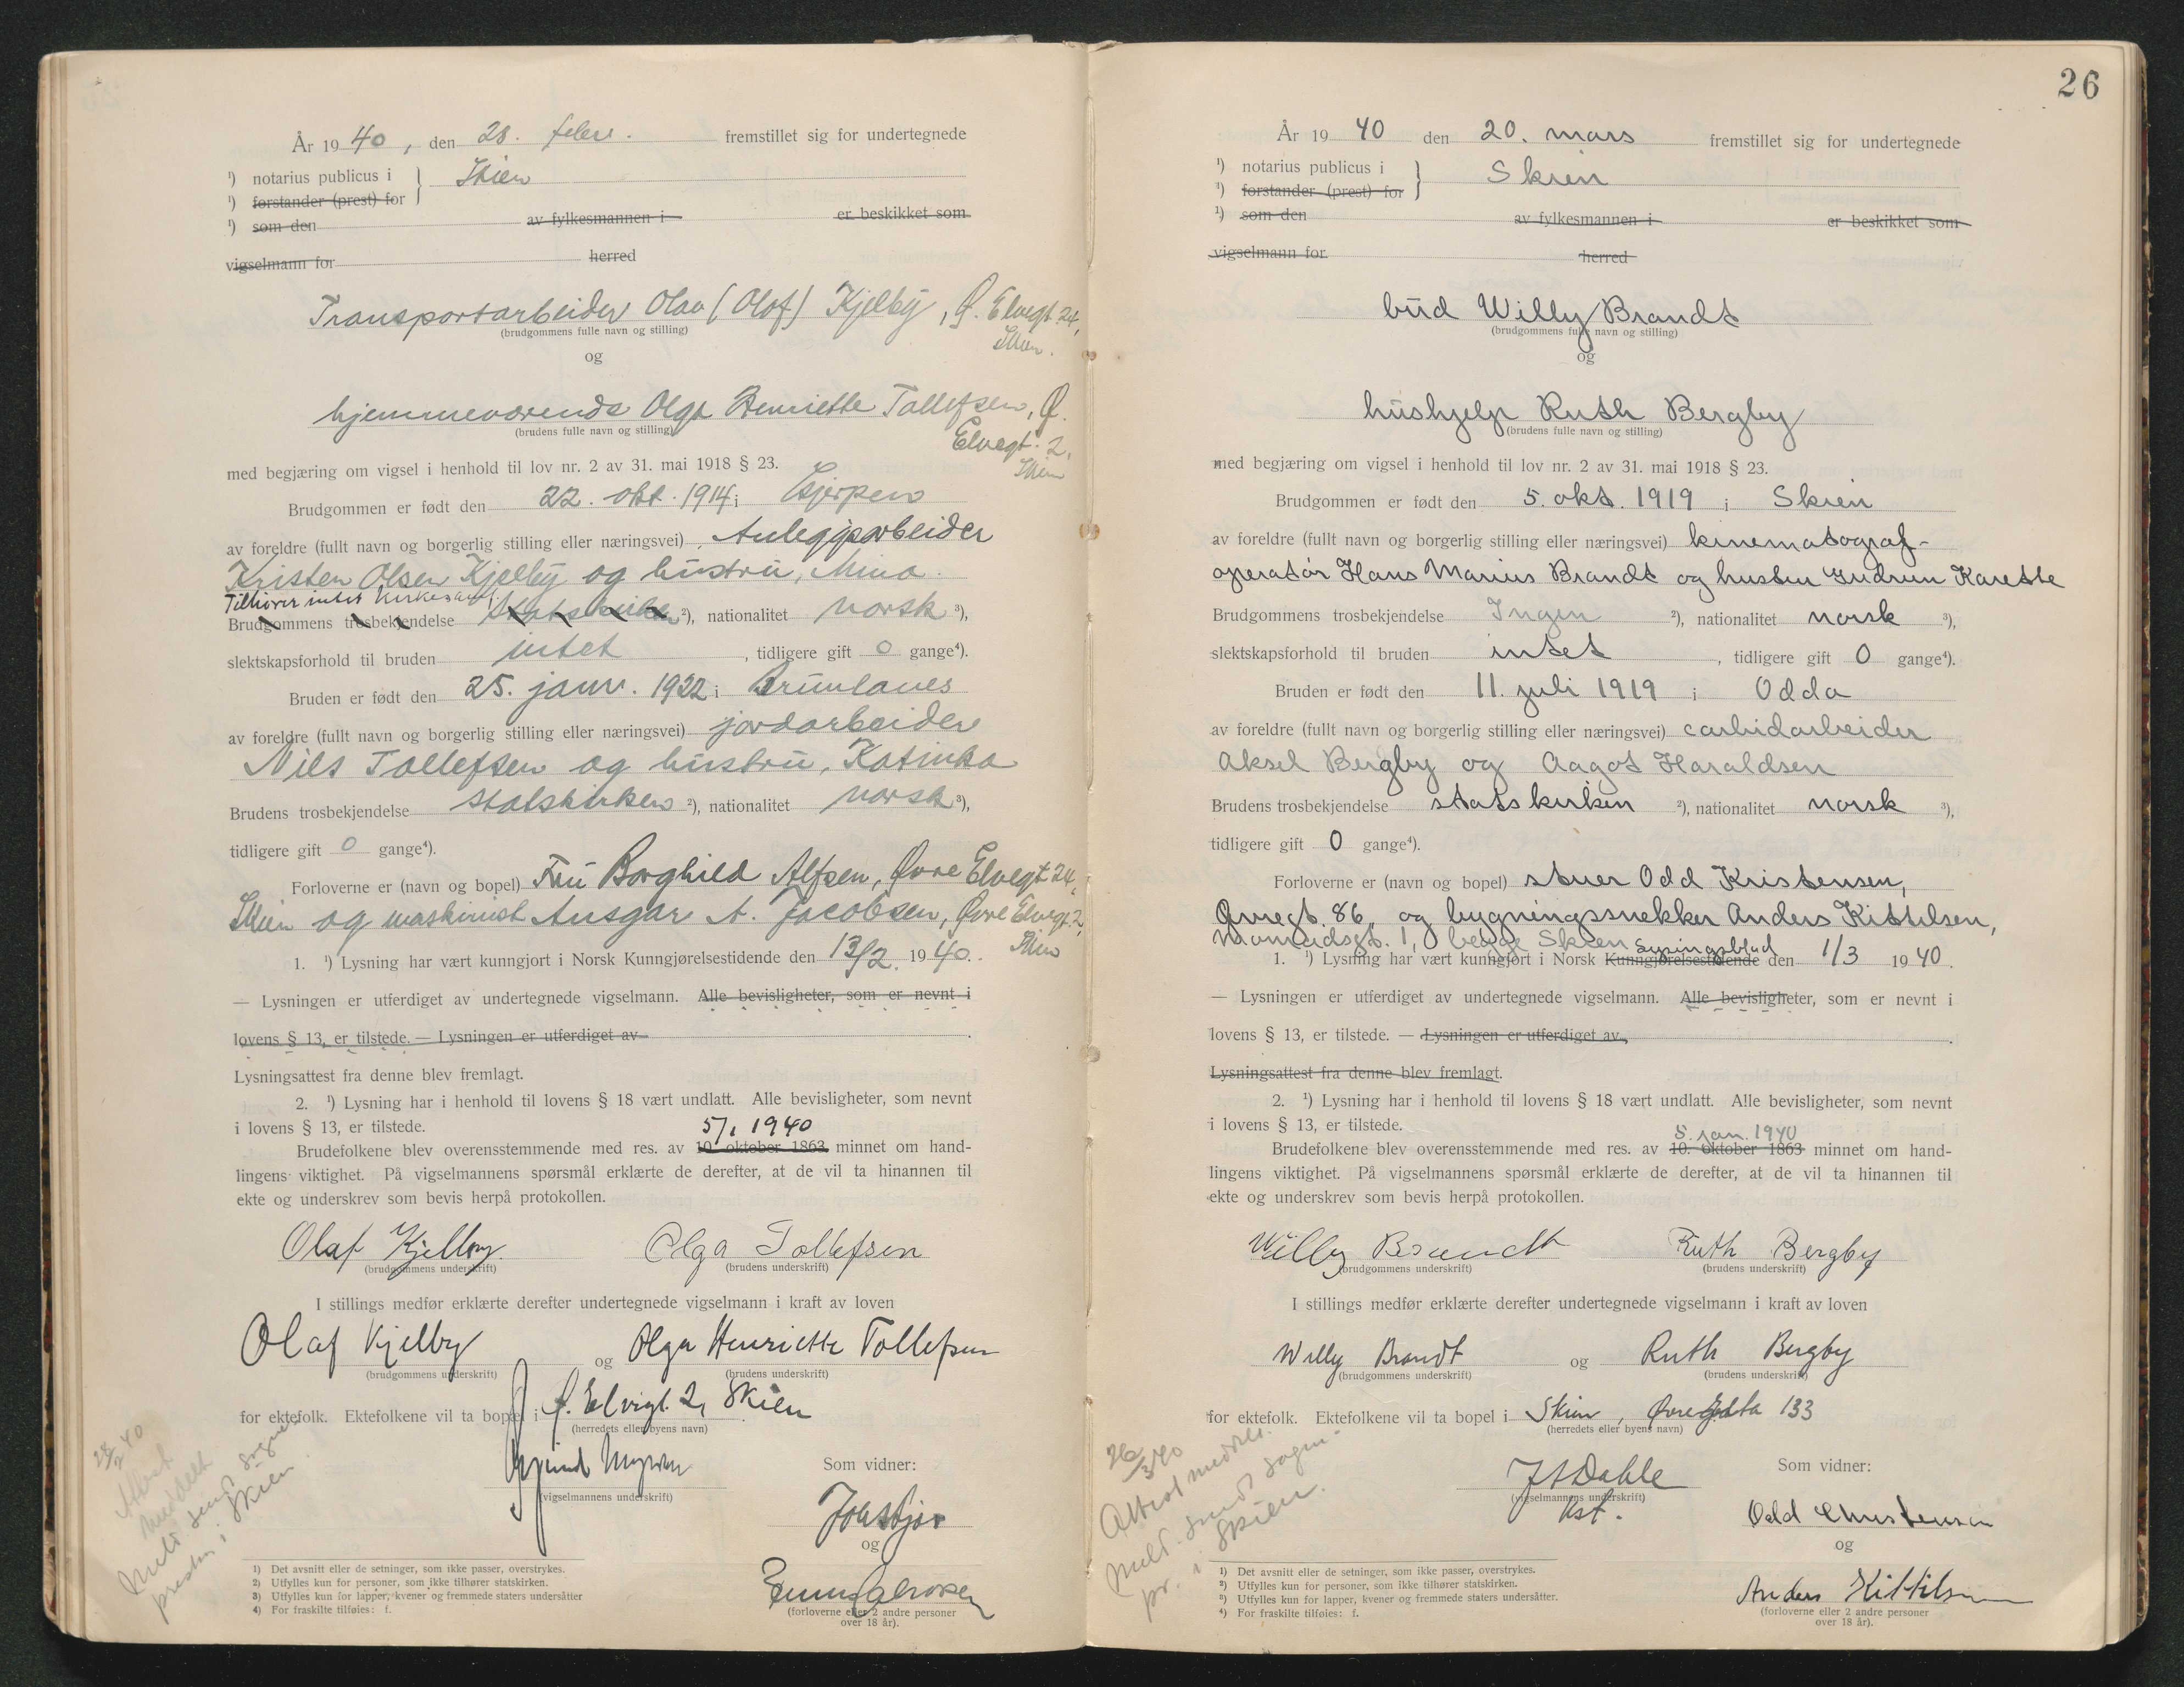 År 19 40, den 28. febr. fremstillet sig for undertegnede
¹) notarius publicus i } Skien
¹) forstander (prest) for
¹) som den av fylkesmannen i er beskikket som
vigselmann for herred
Transportarbeider Olav (Olof) Kjelby, Ø. Elvegt 24,
Skien.
(brudgommens fulle navn og stilling)
og
hjemmeværende Olga Henriette Tollefsen, Ø.
Elvegt. 2,
Skien
(brudens fulle navn og stilling)
med begjæring om vigsel i henhold til lov nr. 2 av 31. mai 1918 § 23.
Brudgommen er født den 22. okt. 1914 i Gjerpen
av foreldre (fullt navn og borgerlig stilling eller næringsvei) Anleggsarbeider
Kristen Olsen Kjelby og hustru, Mina.
Tilhører intet kirkesamf.
Brudgommens trosbekjendelse Statskirken ²), nationalitet norsk ³),
slektskapsforhold til bruden intet, tidligere gift 0 gange⁴).
Bruden er født den 25. janu. 1922 i Brunlanes
av foreldre (fullt navn og borgerlig stilling eller næringsvei) jordarbeider
Nils Tollefsen og hustru, Katinka
Brudens trosbekjendelse statskirken ²), nationalitet norsk ³),
tidligere gift 0 gange⁴).
Forloverne er (navn og bopel) Fru Borghild Alfsen, Øvre Elvegt 24,
Skien og maskinist Ansgar A. Jacobsen, Øvre Elvegt. 2,
Skien
1. ¹) Lysning har vært kunngjort i Norsk Kunngjørelsestidende den 13/2. 19 40.
— Lysningen er utferdiget av undertegnede vigselmann. Alle bevisligheter, som er nevnt i
lovens § 13, er tilstede. — Lysningen er utferdiget av
Lysningsattest fra denne blev fremlagt.
2. ¹) Lysning har i henhold til lovens § 18 vært undlatt. Alle bevisligheter, som nevnt
i lovens § 13, er tilstede.
5/1 1940
Brudefolkene blev overensstemmende med res. av 10. oktober 1863 minnet om hand-
lingens viktighet. På vigselmannens spørsmål erklærte de derefter, at de vil ta hinannen til
ekte og underskrev som bevis herpå protokollen.
Olaf Kjelby Olga Tollefsen
(brudgommens underskrift) (brudens underskrift)
I stillings medfør erklærte derefter undertegnede vigselmann i kraft av loven
Olaf Kjelby og Olga Henriette Tollefsen
(brudgommens underskrift) (brudens underskrift)
for ektefolk. Ektefolkene vil ta bopel i Ø. Elvegt. 2, Skien
(herredets eller byens navn)
Som vidner:
(vigselmannens underskrift)
og
(forloverne eller 2 andre personer
over 18 år).
28/2 40
Attest
meddelt
Meld. sendt sogne-
presten i Skien.
1) Det avsnitt eller de setninger, som ikke passer, overstrykes.
2) Utfylles kun for personer, som ikke tilhører statskirken.
3) Utfylles kun for lapper, kvener og fremmede staters undersåtter
4) For fraskilte tilføies: f.
26
År 19 40 den 20. mars fremstillet sig for undertegnede
¹) notarius publicus i } Skien
¹) forstander (prest) for
¹) som den av fylkesmannen i er beskikket som
vigselmann for herred
bud Willy Brandt
(brudgommens fulle navn og stilling)
og
hushjelp Ruth Bergby
(brudens fulle navn og stilling)
med begjæring om vigsel i henhold til lov nr. 2 av 31. mai 1918 § 23.
Brudgommen er født den 5. okt. 1919 i Skien
av foreldre (fullt navn og borgerlig stilling eller næringsvei) kinematograf-
operatør Hans Marius Brandt og hustru Gudrun Karette
Brudgommens trosbekjendelse Ingen ²), nationalitet norsk ³),
slektskapsforhold til bruden intet, tidligere gift 0 gange⁴).
Bruden er født den 11. juli 1919 i Odda
av foreldre (fullt navn og borgerlig stilling eller næringsvei) carbidarbeider
Aksel Bergby og Aagot Haraldsen
Brudens trosbekjendelse statskirken ²), nationalitet norsk ³),
tidligere gift 0 gange⁴).
Forloverne er (navn og bopel) stuer Odd Kristensen,
Øvregt. 86, og bygningssnekker Anders Kittilsen,
1, begge Skien
Lysingsblad
1. ¹) Lysning har vært kunngjort i Norsk Kunngjørelsestidende den 1/3 19 40.
— Lysningen er utferdiget av undertegnede vigselmann. Alle bevisligheter, som er nevnt i
lovens § 13, er tilstede. — Lysningen er utferdiget av
Lysningsattest fra denne blev fremlagt.
2. ¹) Lysning har i henhold til lovens § 18 vært undlatt. Alle bevisligheter, som nevnt
i lovens § 13, er tilstede.
5. jan. 1940
Brudefolkene blev overensstemmende med res. av 10. oktober 1863 minnet om hand-
lingens viktighet. På vigselmannens spørsmål erklærte de derefter, at de vil ta hinannen til
ekte og underskrev som bevis herpå protokollen.
Willy Brandt Ruth Bergby
(brudgommens underskrift) (brudens underskrift)
I stillings medfør erklærte derefter undertegnede vigselmann i kraft av loven
Willy Brandt og Ruth Bergby
(brudgommens underskrift) (brudens underskrift)
for ektefolk. Ektefolkene vil ta bopel i Skien, Øvregata 133
(herredets eller byens navn)
Dahle
(vigselmannens underskrift)
kst.
Som vidner:
Odd Christensen
og
Anders Kittilsen
(forloverne eller 2 andre personer
over 18 år).
26/3 40
Attest meddelt.
Meld. sendt sogne-
pr. i Skien.
1) Det avsnitt eller de setninger, som ikke passer, overstrykes.
2) Utfylles kun for personer, som ikke tilhører statskirken.
3) Utfylles kun for lapper, kvener og fremmede staters undersåtter.
4) For fraskilte tilføies: f.